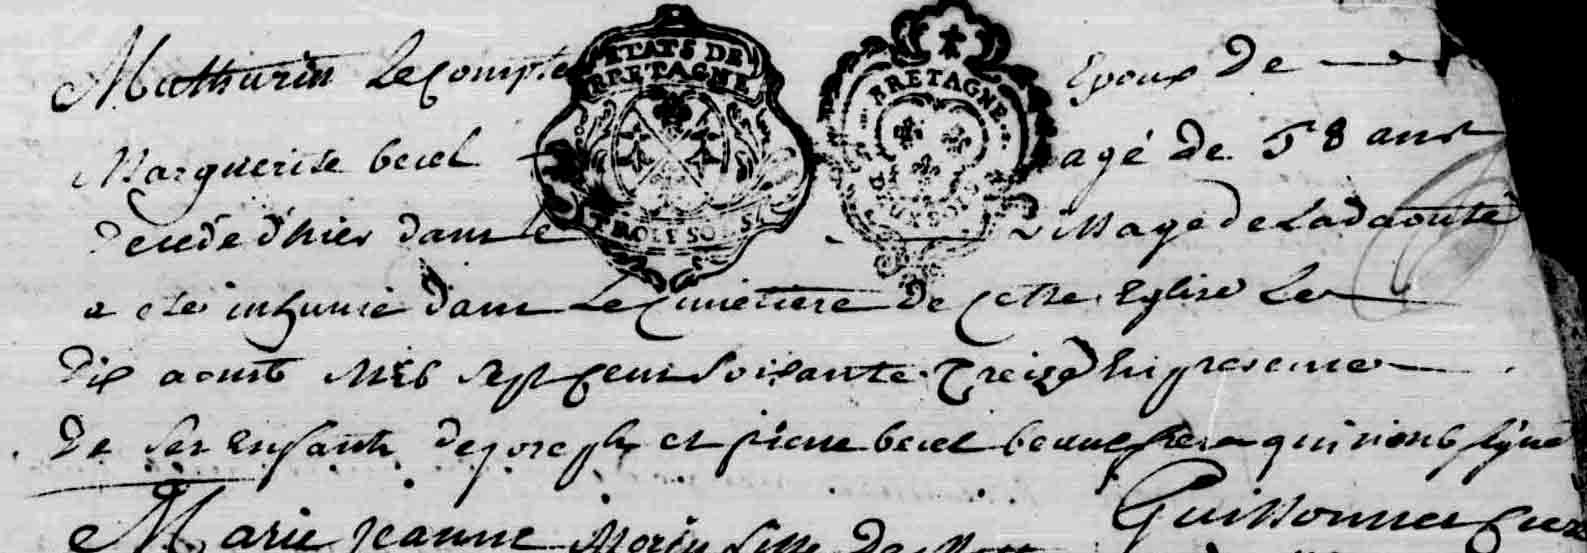 Mathurin Lecompte Epoux de
ETATS DE BRETAGNE
TROIS SOLS
BRETAGNE
DEUX SOLS
Marguerite becel agé de 58 ans
decedé d'hier dans le village de Ladaoute
a eté inhumé dans Le Cimetiere de Cette Eglise Le
Dix aoust Mil Sept Cent Soixante Treize En presence
De Ses Enfants de joseph et pierre becel beaux freres qui n'ont signé
Marie jeanne Morin fille De